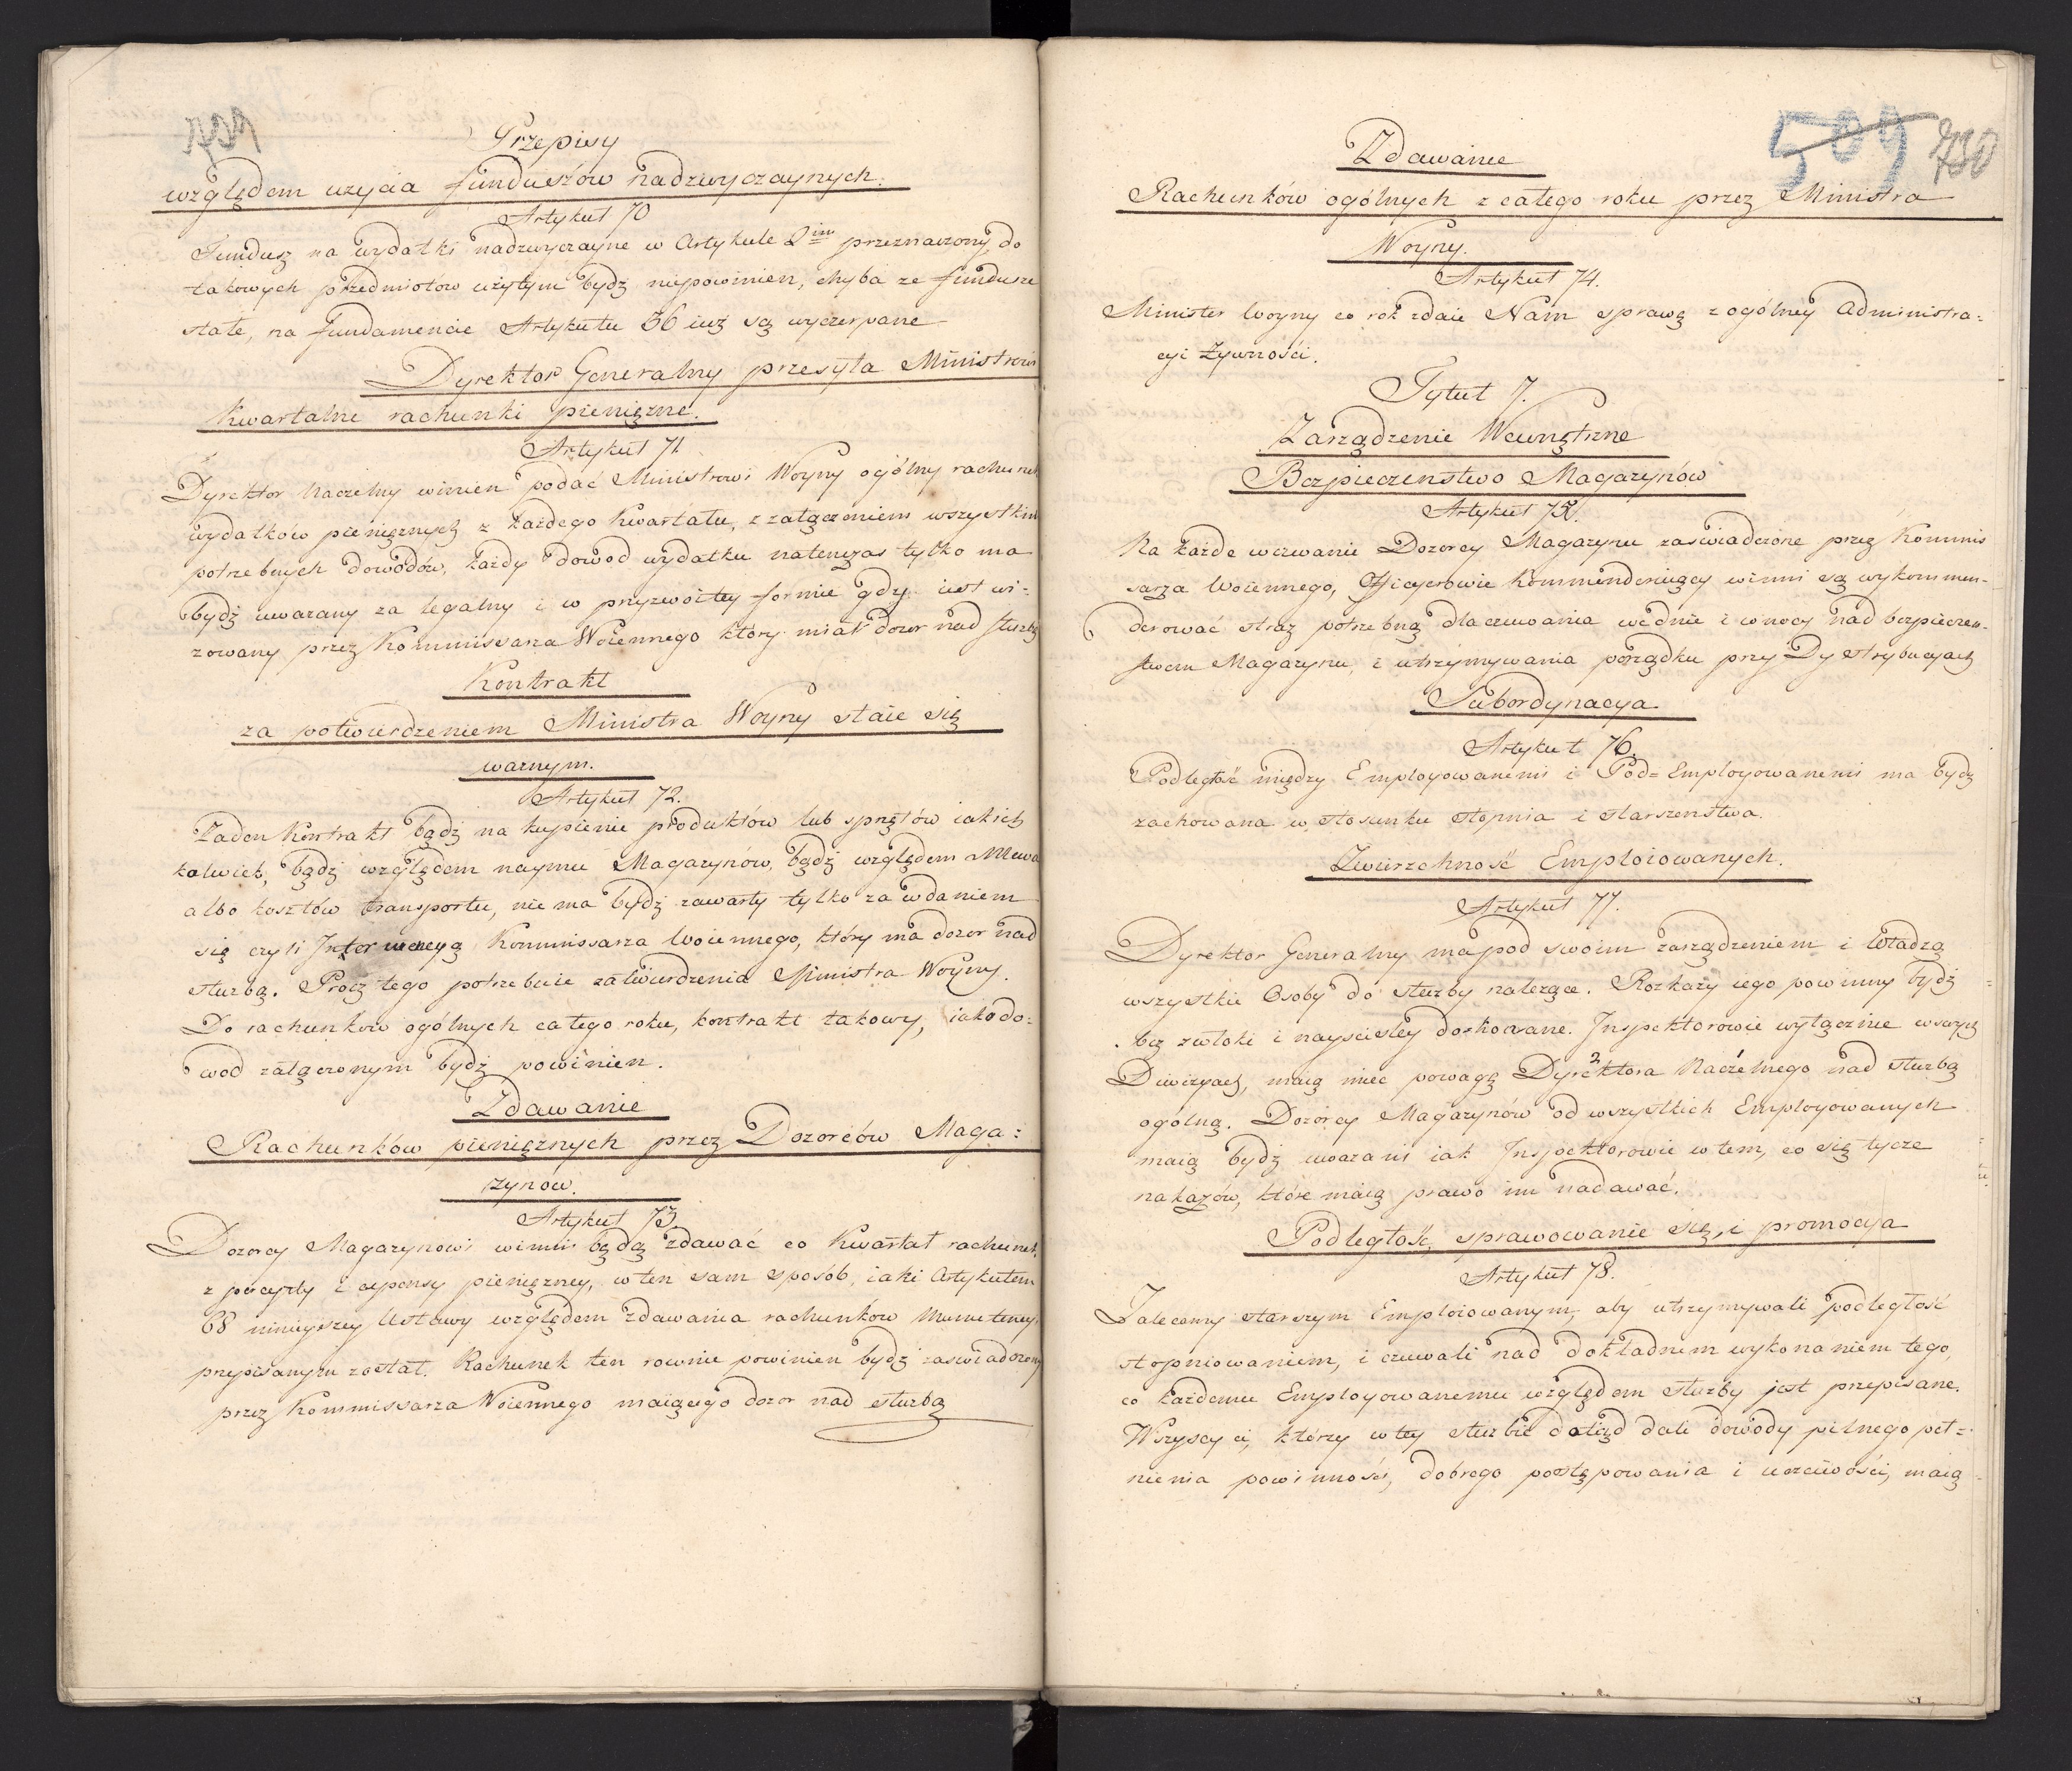 Przepisy
względem uzycia funduszów nadzwyczaynych.
Artykuł 70
Fundusz na wydatki nadzwyczayne w Artykule 2im przeznaczony, do
takowych przedmiotów użytym bydź niepowinien, chyba ze fundusze
stałe, na fundamencie Artykułu 56 iuż są wyczerpane
Dyrektor Generalny przesyła Ministrowi
Kwartalne rachunki pieniężne.
Artykuł 71
Dyrektor Naczelny winien podać Ministrowi Woyny ogólny rachunek
wydatków pieniężnych z każdego Kwartału, z załączeniem wszystkich
potrzebnych dowodów, każdy dowod wydatku natenczas tylko ma
bydź uwazany za legalny i w przyzwoitey formie gdy iest wi-
zowany przez Kommissarza Woiennego który miał dozor nad służbą
Kontrakt
za potwierdzeniem Ministra Woyny staie się
waznym.
Artykuł 72.
Żaden Kontrakt bądź na kupienie produktów lub sprzętów iakich
kolwiek, bądź względem naymu Magazynów, bądź względem Mlewa
albo kosztów transportu, nie ma bydź zawarty tylko za wdaniem
się czyli Interwencyą Kommissarza Woiennego, który ma dozor nad
służbą. Procz tego potrzebuie zatwierdzenia Ministra Woyny.
Do rachunków ogólnych całego roku, kontrakt takowy, iako do=
wod załączonym bydź powinien.
Zdawanie
Rachunków pieniężnych przez Dozorców Maga=
zynow.
Artykuł 73.
Dozorcy Magazynowi winni będą zdawać co Kwartał rachunek
z percepty i expensy pieniężney, w ten sam sposób, iaki Artykułem
68 ninieyszey Ustawy względem zdawania rachunków
przepisanym został. Rachunek ten rownie powinien bydź zaświadczony
przez Kommissarza Woiennego maiącego dozor nad służbą
509 730
Zdawanie
Rachunków ogólnych z całego roku przez Ministra
Woyny.
Artykuł 74.
Minister Woyny co rok zdaie Nam sprawę z ogólney Administra=
cyi Żywności.
Tytuł 7.
Zarządzenie Wewnętrzne
Bezpieczenstwo Magazynów
Artykuł 75.
Na każde wezwanie Dozorcy Magazynu zaświadczone przez Kommis
sarza Woiennego, Officyerowie Kommenderuiący winni są wykommen-
derować straż potrzebną dla czuwania wednie i wnocy nad bezpieczen-
stwem Magazynu, i utrzymywania porządku przy Dystrybucyach
Subordynacya
Artykuł 76.
Podległość między Employowanemi i Pod=Employowanemi ma bydź
zachowana w stosunku stopnia i starszenstwa.
Zwierzchność Emploiowanych.
Artykuł 77.
Dyrektor Generalny ma pod swoim zarządzeniem i Władzą
wszystkie Osoby do służby należące. Rozkazy iego powinny bydź
bez zwłoki i nayscisley doskonane. Inspektorowie wyłącznie w swych
Diwizyach, maią mieć powagę Dyrektora Naczelnego nad służbą
ogólną. Dozorcy Magazynów od wszystkich Employowanych
maią bydź uwazani iak Inspektorowie w tem, co się tycze
nakazów, które maią prawo im nadawać.
Podległość, sprawowanie się, i promocya
Artykuł 78.
Zalecamy starszym Emploiowanym, aby utrzymywali podległość
stopniowaniem, i czuwali nad dokładnem wykonaniem tego,
co każdemu Employowanemu względem służby jest przepisane.
Wszyscy ci, którzy w tey służbie dotąd dali dowody pilnego peł=
nienia powinności, dobrego postępowania i uczciwości, maią